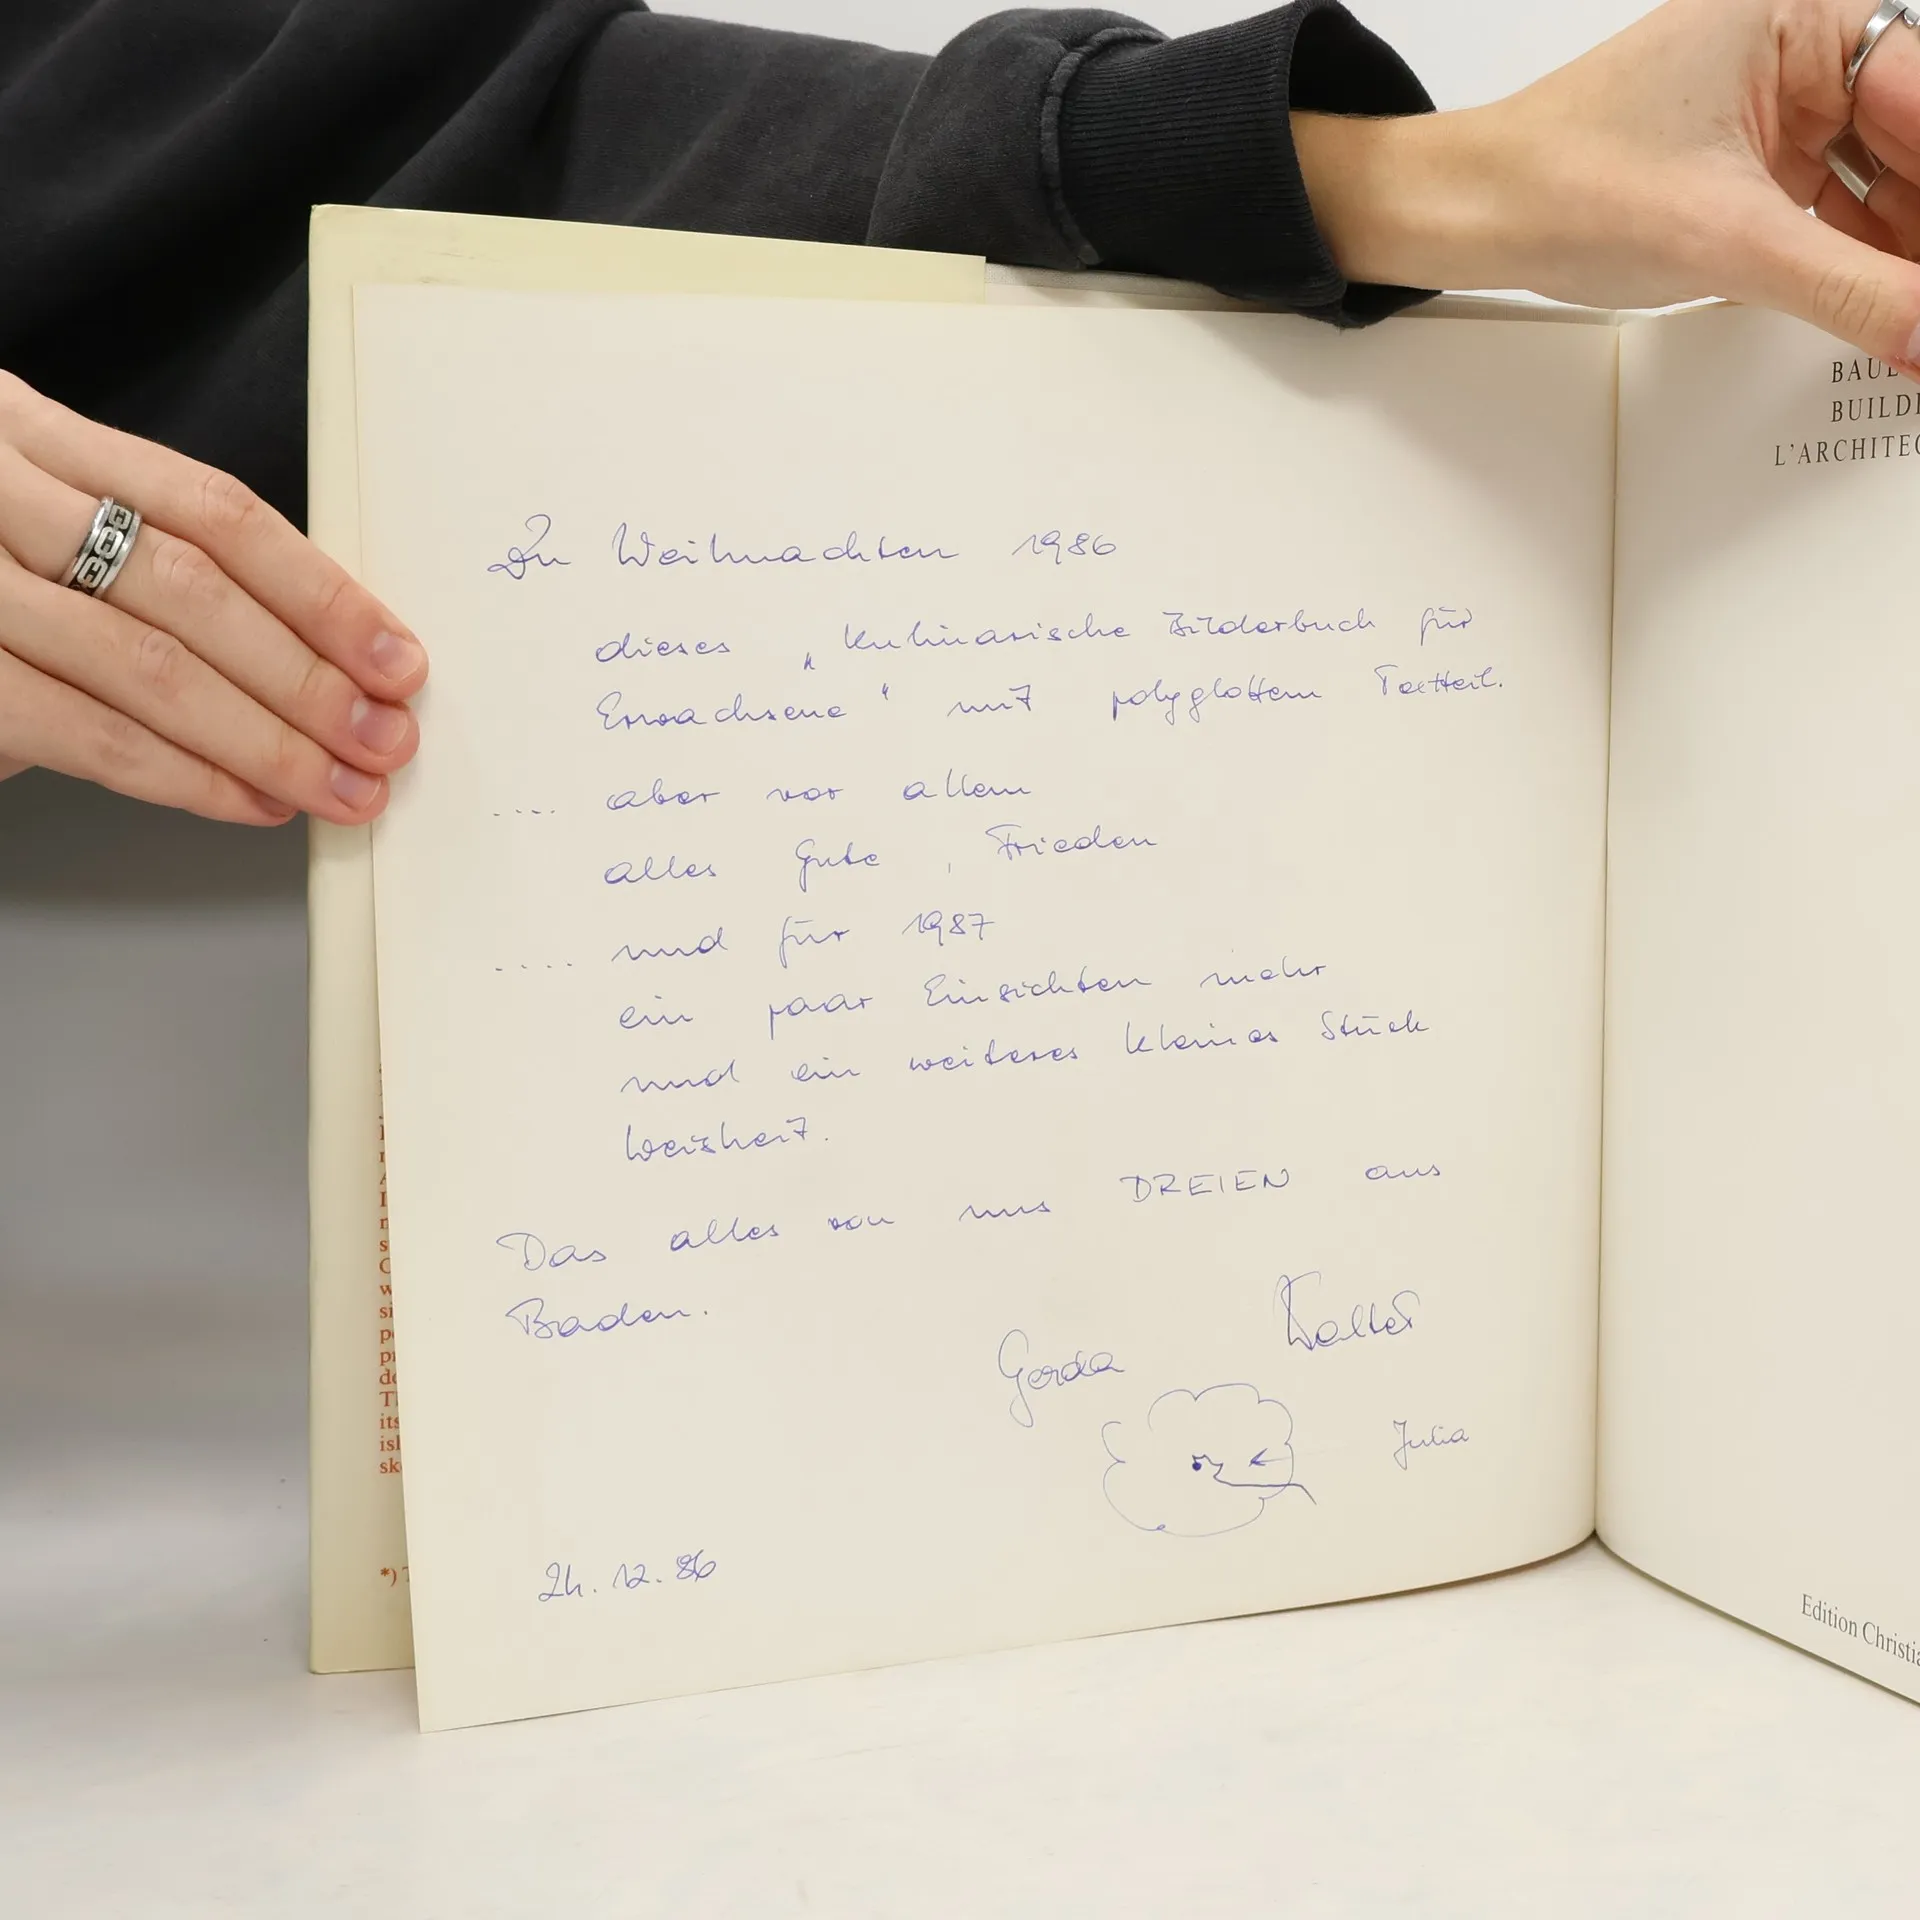 Zu Weihnachten 1986
dieses „Kulinarische Bilderbuch für
Erwachsene“ mit polyglottem Textteil.
.... aber vor allem
alles Gute, Frieden
.... und für 1987
ein paar Einsichten mehr
und ein weiteres kleines Stück
Weisheit.
Das alles von uns DREIEN aus
Baden.
Gerda Walter
Julia
24.12.86
BAUE
BUILDI
L'ARCHITEC
Edition Christia